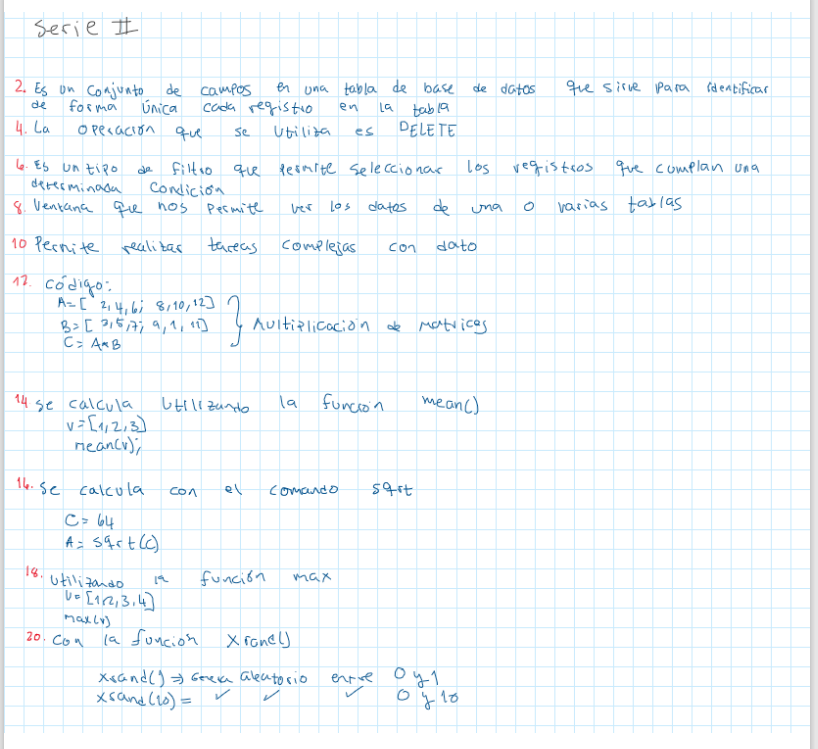 Serie II
2. Es un conjunto de campos en una tabla de base de datos que sirve para identificar
de forma única cada registro en la tabla
4. La operación que se utiliza es DELETE
6. Es un tipo de filtro que permite seleccionar los registros que cumplan una
determinada condición
8. Ventana que nos permite ver los datos de una o varias tablas
10 Permite realizar tareas complejas con dato
12. código:
A=[ 2,4,6; 8,10,12]
B=[ 3,5,7; 9,1,11] } Multiplicación de matrices
C= A*B
14 se calcula utilizando la función mean()
v=[1,2,3]
mean(v);
16. se calcula con el comando sqrt
C= 64
A= sqrt(C)
18. utilizando la función max
v=[1,2,3,4]
max(v)
20. con la función xrand()
xrand() ⇒ aleatorio entre 0 y 1
xrand(10) = ✓ ✓ ✓ 0 y 10